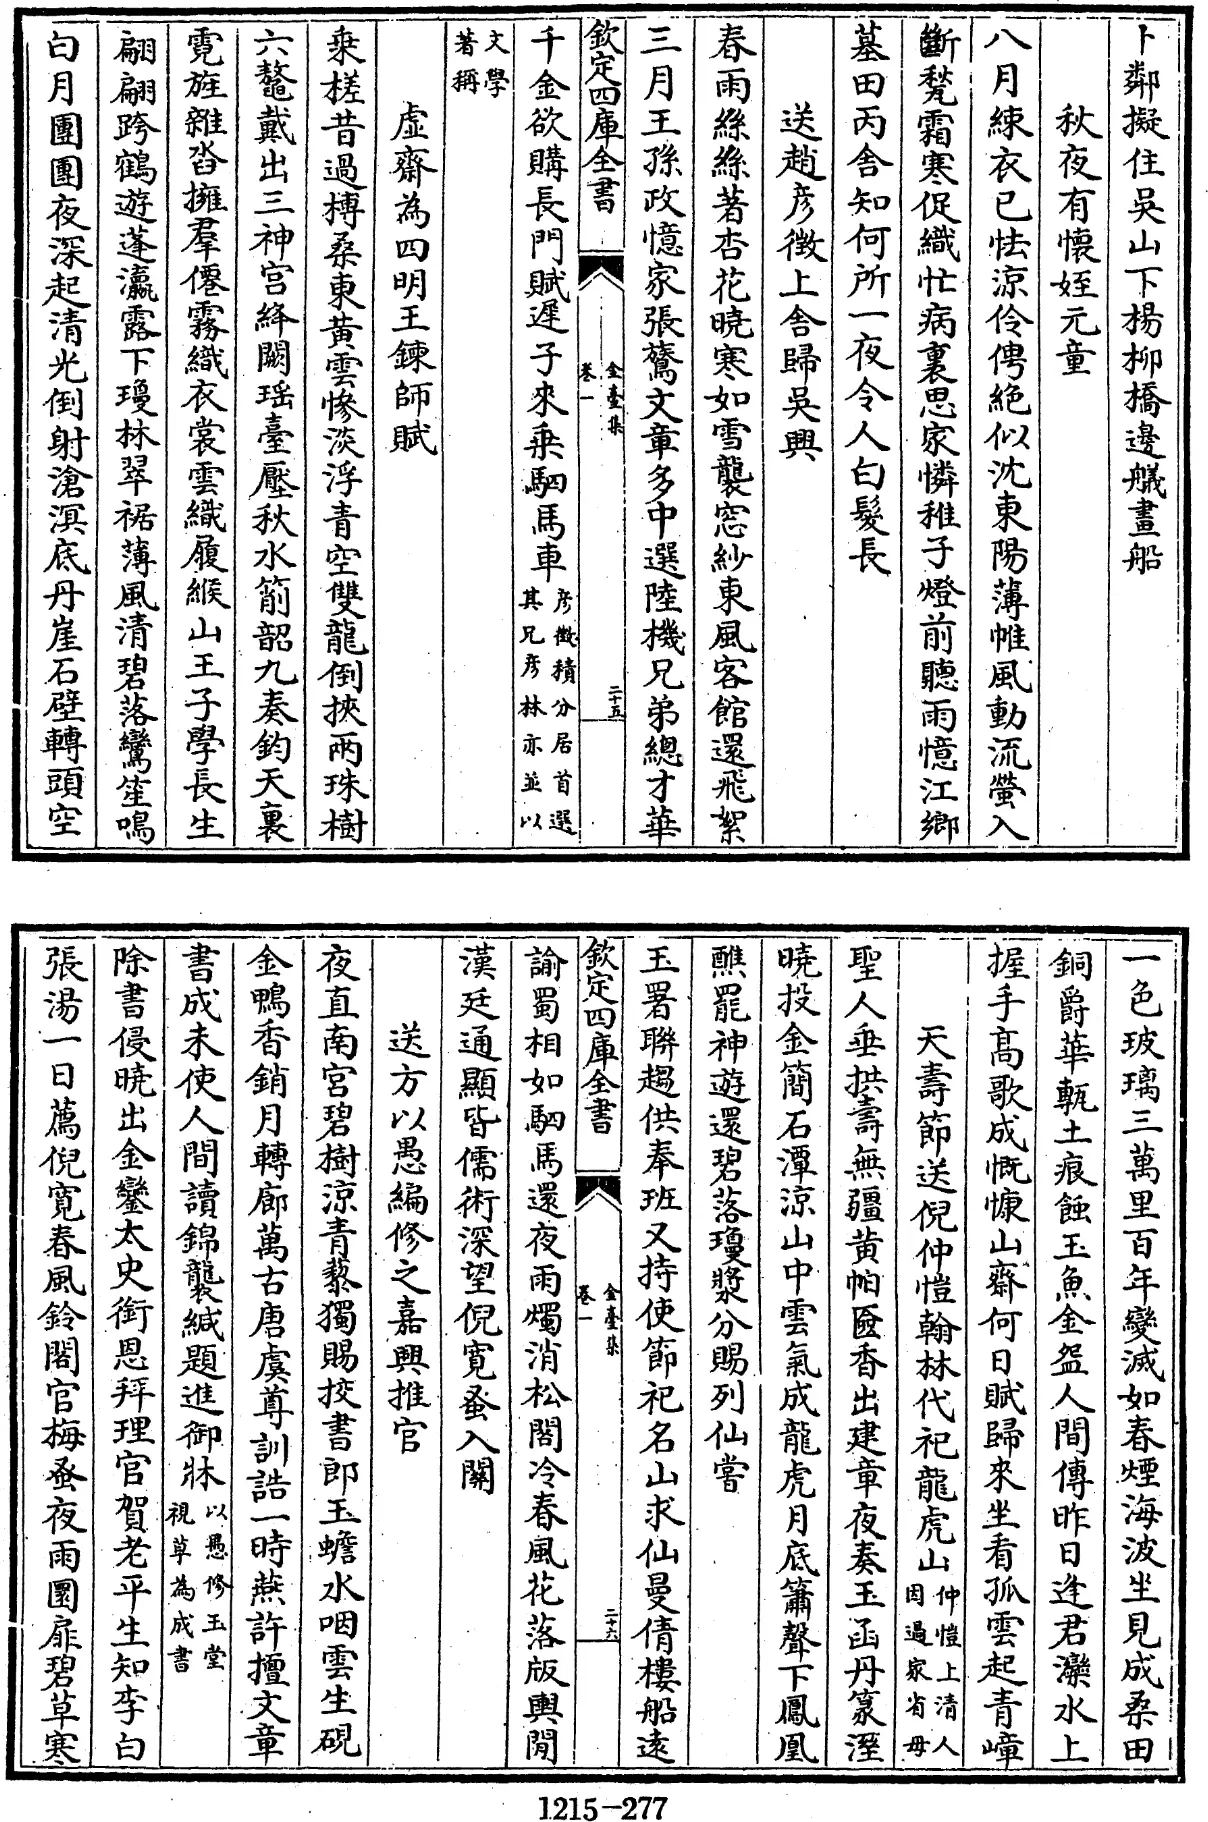 卜鄰擬住吳山下楊柳橋邊艤畫船
秋夜有懷姪元童
八月練衣已怯涼伶俜絕似沈東陽薄帷風動流螢入
斷甃霜寒促織忙病裏思家憐稚子燈前聽雨憶江鄉
墓田丙舍知何所一夜令人白髮長
送趙彥徵上舍歸吳興
春雨絲絲著杏花曉寒如雪襲窓紗東風客館還飛絮
三月王孫政憶家張鷟文章多中選陸機兄弟總才華
欽定四庫全書
金臺集
卷一
二十五
千金欲購長門賦遲子來乗駟馬車
彥徵積分居首選
其兄彥林亦並以
文學
著稱
虛齋為四明王鍊師賦
乗槎昔過榑桑東黃雲慘淡浮青空雙龍倒挾兩珠樹
六鼇戴出三神宮絳闕瑶臺壓秋水箾韶九奏鈞天裏
霓旌雜沓擁羣僊霧織衣裳雲織履緱山王子學長生
翩翩跨鶴遊蓬瀛露下瓊林翠裾薄風清碧落鸞笙鳴
白月團團夜深起清光倒射滄溟底丹崖石壁轉頭空
一色玻瓈三萬里百年變滅如春煙海波坐見成桑田
銅爵華甎土痕蝕玉魚金盌人間傳昨日逢君灤水上
握手高歌成慨慷山齋何日賦歸來坐看孤雲起青嶂
天壽節送倪仲愷翰林代祀龍虎山
仲愷上清人
因過家省母
聖人垂拱壽無疆黃帕匳香出建章夜奏玉函丹篆溼
曉投金簡石潭涼山中雲氣成龍虎月底簫聲下鳳凰
醮罷神遊還碧落瓊漿分賜列仙嘗
玉署聯趨供奉班又持使節祀名山求仙曼倩樓船遠
欽定四庫全書
金臺集
卷一
二十六
諭蜀相如駟馬還夜雨燭消松閣冷春風花落版輿閒
漢廷通顯皆儒術深望倪寬蚤入關
送方以愚編修之嘉興推官
夜直南宮碧樹涼青藜獨賜挍書郎玉蟾水咽雲生硯
金鴨香銷月轉廊萬古唐虞尊訓誥一時燕許擅文章
書成未使人間讀錦襲緘題進御牀
以愚修玉堂
視草為成書
除書侵曉出金鑾太史銜恩拜理官賀老平生知李白
張湯一日薦倪寬春風鈴閣官梅蚤夜雨圜扉碧草寒
1215-277